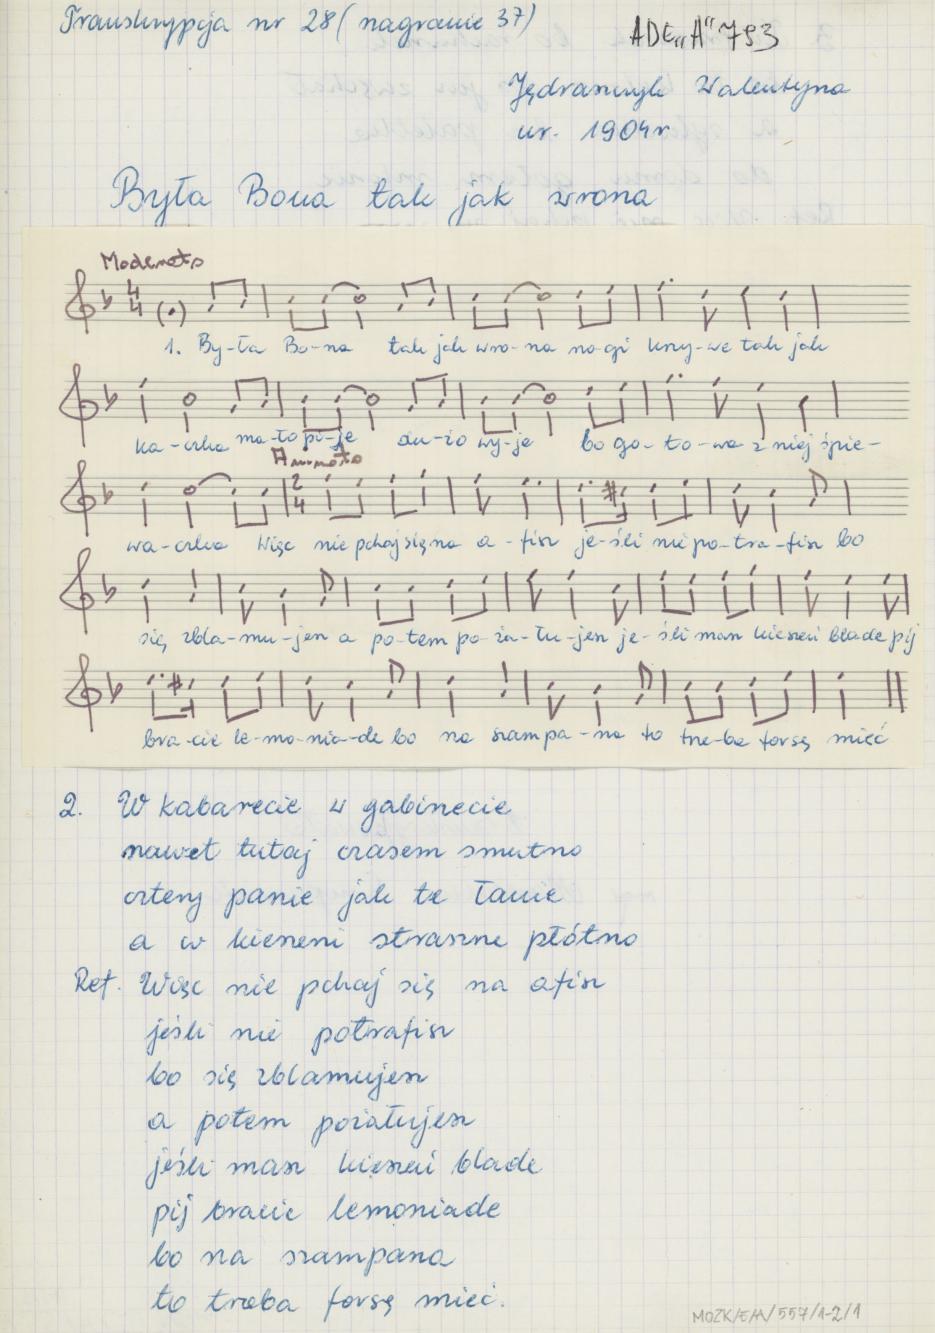 Transkrypcja nr 28 (nagranie 37)
ADE „A" 793
Jędraszczyk Walentyna
ur. 1904r
Była Bona tak jak wrona
Moderato
1. By-ła Bo-na tak jak wro-na no-gi krzy-we tak jak
ka-czka ma-ło pi-je du-żo wy-je bo go-to-wa z niej śpie-
Animato
wa-czka Więc nie pchaj się na a-fisz je-śli nie po-tra-fisz bo
się zbla-mu-jesz a po-tem po-ża-łu-jesz je-śli masz kieszeń blade pij
bra-cie le-mo-nia-de bo na szampa-na to trze-ba forsę mieć
2. W kabarecie w gabinecie
nawet tutaj czasem smutno
cztery panie jak te łanie
a w kieszeni straszne płótno
Ref. Więc nie pchaj się na afisz
jeśli nie potrafisz
bo się zblamujesz
a potem pożałujesz
jeśli masz kieszeń blade
pij bracie lemoniade
bo na szampana
to trzeba forsę mieć.
MOZK/E/A/557/1-2/1